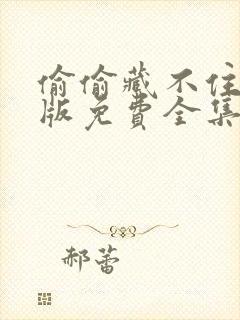 偷偷藏不住
版免费全集
郝蕾